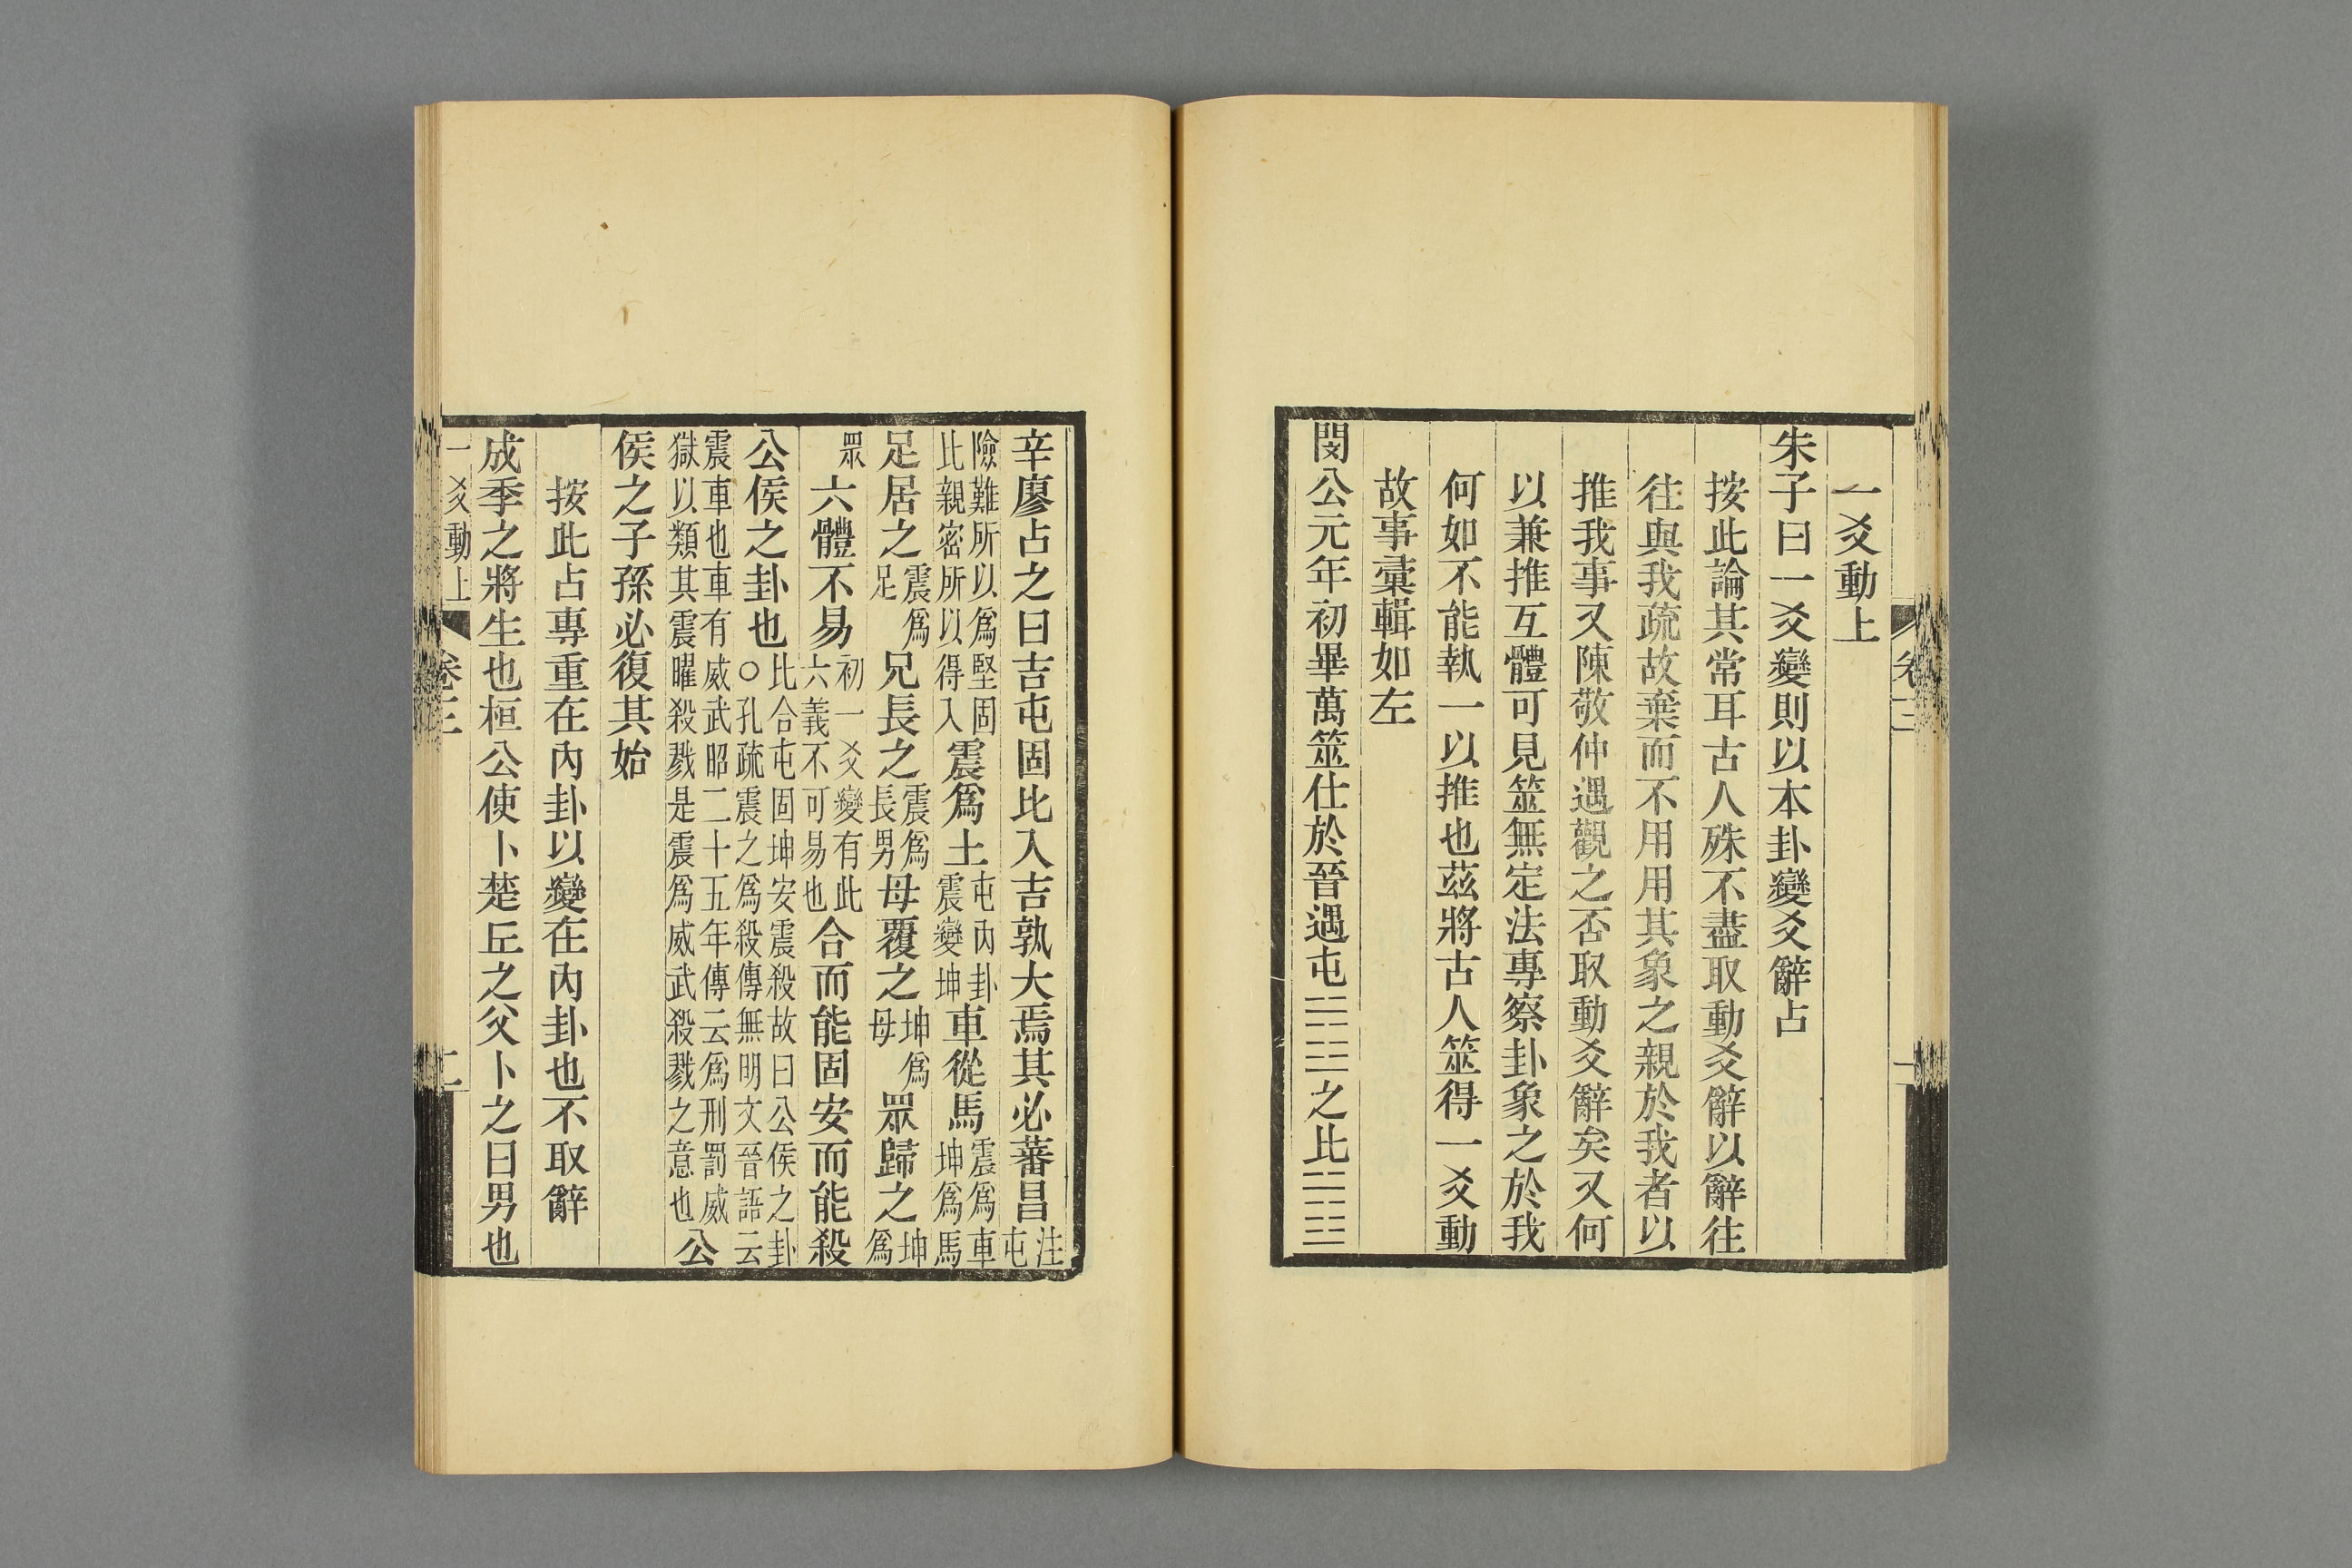 一爻動上
朱子曰一爻變則以本卦變爻辭占
按此論其常耳古人殊不盡取動爻辭以辭往
往與我疏故棄而不用用其象之親於我者以
推我事又陳敬仲遇觀之否取動爻辭矣又何
以兼推互體可見筮無定法專察卦象之於我
何如不能執一以推也茲將古人筮得一爻動
故事彙輯如左
閔公元年初畢萬筮仕於晉遇屯䷂之比䷇
辛廖占之曰吉屯固比入吉孰大焉其必蕃昌注屯
險難所以爲堅固比親密所以得入震爲土屯內卦震變坤車從馬震爲車坤爲馬
足居之震爲足兄長之震爲長男母覆之坤爲母眾歸之坤爲
眾六體不易初一爻變有此六義不可易也合而能固安而能殺
公侯之卦也比合屯固坤安震殺故曰公侯之卦○孔疏震之爲殺傳無明文晉語云
震車也車有威武昭二十五年傳云爲刑罰威獄以類其震曜殺戮是震爲威武殺戮之意也公
侯之子孫必復其始
按此占專重在內卦以變在內卦也不取辭
成季之將生也桓公使卜楚丘之父卜之曰男也
一爻動上 卷三 二